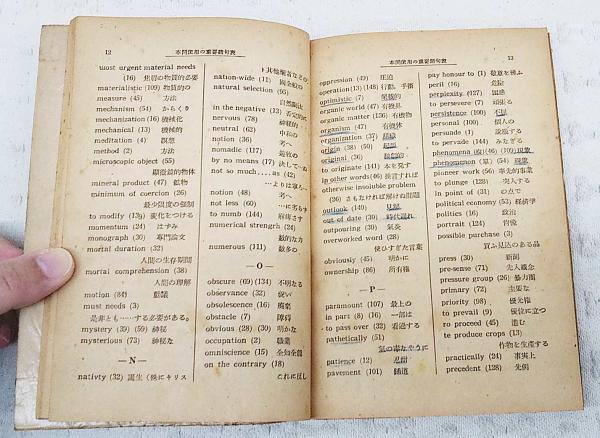 12 本問使用の重要語句表
most urgent material needs
(16) 焦眉の物質的必要
materialistic (109) 物質的の
measure (45) 方法
mechanism (51) からくり
mechanization (16) 機械化
mechanical (13) 機械的
meditation (4) 瞑想
method (2) 方法
microscopic object (55)
顯微鏡的物体
mineral product (47) 鉱物
minimum of coercion (26)
最少限度の強制
to modify (139) 変化をつける
momentum (24) はずみ
monograph (30) 専門論文
mortal duration (32)
人間の生存期間
mortal comprehension (38)
人間の理解
motion (84) 動議
must needs (3)
是非とも……する必要がある。
mystery (39) (59) 神秘
mysterious (73) 神秘な
—N—
nativty (32) 誕生 (殊にキリス
nation-wide (11) 國全般の
natural selection (95)
自然淘汰
in the negative (13) 否定的に
nervous (78) 神経的
neutral (62) 中和の
notion (36) 考へ
nomadic (117) 遊牧の
by no means (17) 決して…ぬ
not so much....as (42)
…よりは寧ろ…
notion (48) 考へ
not less (60) …に劣らず
to numb (144) 麻痺さす
numerical strength (24)
数的な力
numerous (111) 数多の
—O—
obscure (69) (134) 不明なる
observance (32) 従い
obsolescence (16) 廃棄
obstacle (7) 障碍
obvious (28) (30) 明かな
occupation (2) 職業
omniscience (15) 全知全能
on the contrary (18)
これに反し
本問使用の重要語句表 13
oppression (49) 圧迫
operation (13) (148) 行動, 手術
optimistic (7) 楽観的
organic world (47) 有機界
organic matter (136) 有機物
organism (47) 有機体
organization (37) 組織
origin (38) (50) 起原
original (36) 独創的
to originate (141) 本を発す
in other words (46) 換言すれば
otherwise insoluble problem
(26) さもなければ解けぬ問題
outlook (149) 見解
out of date (30) 時代遅れ
outpouring (30) 氾濫
overworked word (28)
使ひすぎた言葉
obviously (45) 明かに
ownership (86) 所有權
—P—
paramount (107) 最上の
in part (8) (16) 一部は
to pass over (32) 看過する
pathetically (51)
気の毒なやうに
patience (12) 忍耐
pavement (101) 舗道
pay honour to (1) 敬意を拂ふ
peril (16) 危険
perplexity (127) 困惑
to persevere (7) 頑張る
persistence (100) 不屈
personal (100) 個人の
persuade (1) 説服する
to pervade (144) みなぎる
phenomena (複) (46) (109) 現象
phenomenon (単) (54) 現象
pioneer work (56) 率先的事業
to plunge (128) 突入する
in point of (31) の点で
political economy (53) 経済学
politics (16) 政治
portrait (124) 肖像
possible purchase (3)
買ふ見込のある品
press (30) 新聞
pre-sense (71) 先入感念
pressure group (26) 暴力團
primary (72) 主要な
priority (98) 優先権
to prevail (9) 優位に立つ
to proceed (45) 進む
to produce crops (13)
作物を生産する
practically (24) 事実上
precedent (128) 先例